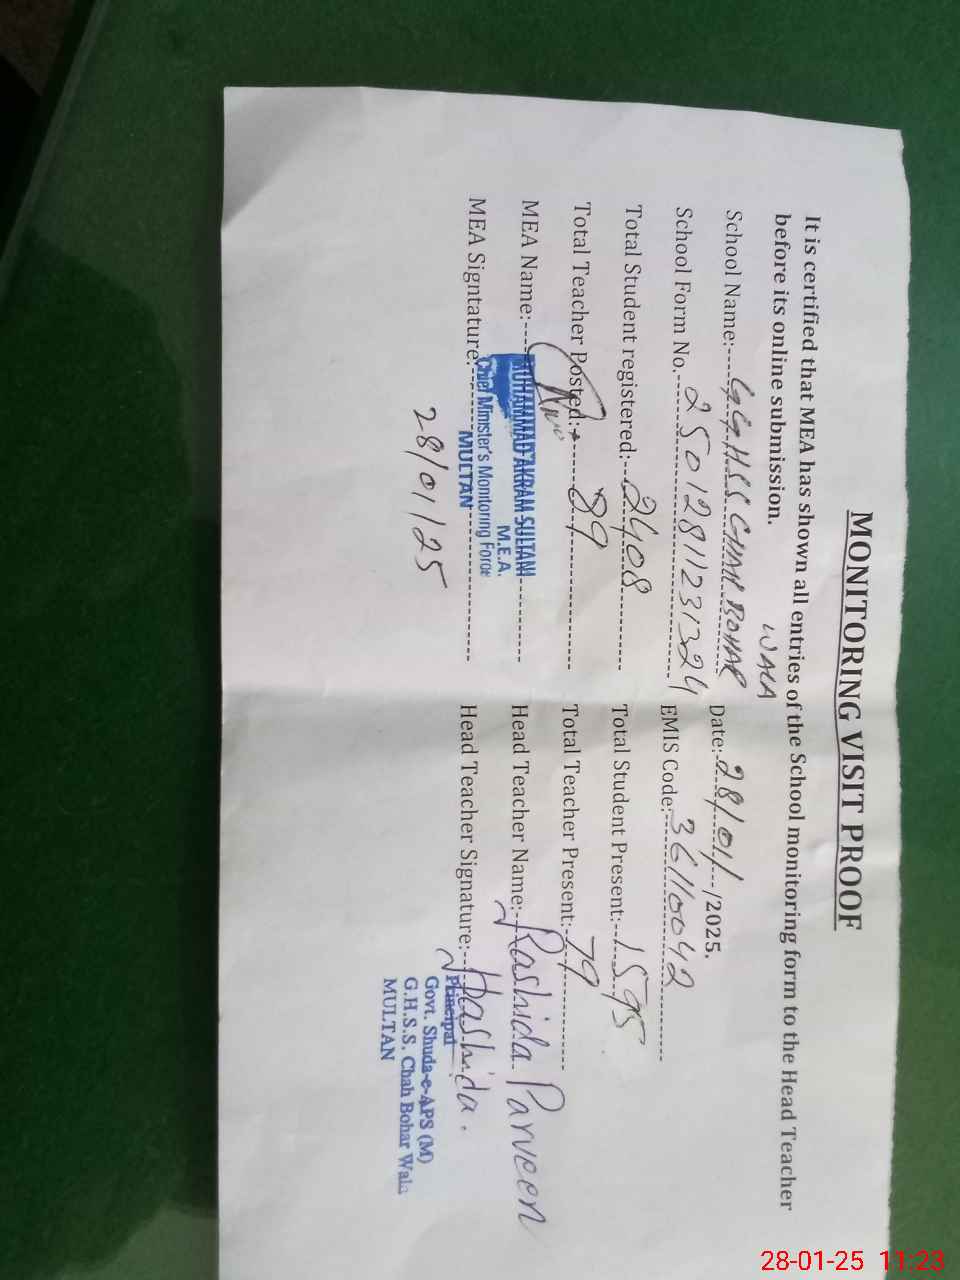 MONITORING VISIT PROOF
It is certified that MEA has shown all entries of the School monitoring form to the Head Teacher
before its online submission.
WALA
School Name:----GGHSS CHAH BOHAR Date:-28/01/--/2025.
School Form No.---25012811231324 EMIS Code:-36110042
Total Student registered:---2408 Total Student Present:--1595
Total Teacher Posted:-----89 Total Teacher Present:-79
MEA Name:---- Head Teacher Name:--Rashida Parveen
MUHAMMAD AKRAM SULTANI
M.E.A.
Chief Minister's Monitoring Force
MULTAN
MEA Signtature:---- Head Teacher Signature:--Rashida.
28/01/25
Principal
Govt. Shuda-e-APS (M)
G.H.S.S. Chah Bohar Wala
MULTAN
28-01-25 11:23